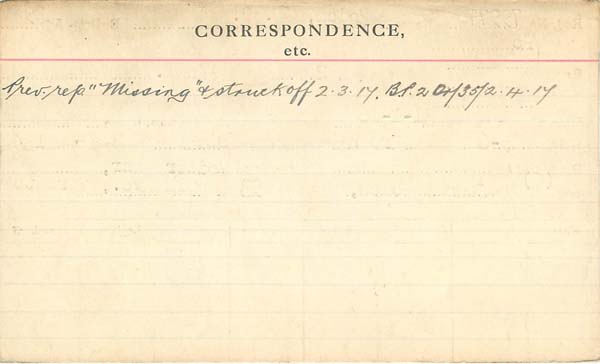 CORRESPONDENCE,
etc.
Prev. rep "Missing" & struck off 2.3.17. B.S.2 Or/35/2.4.17